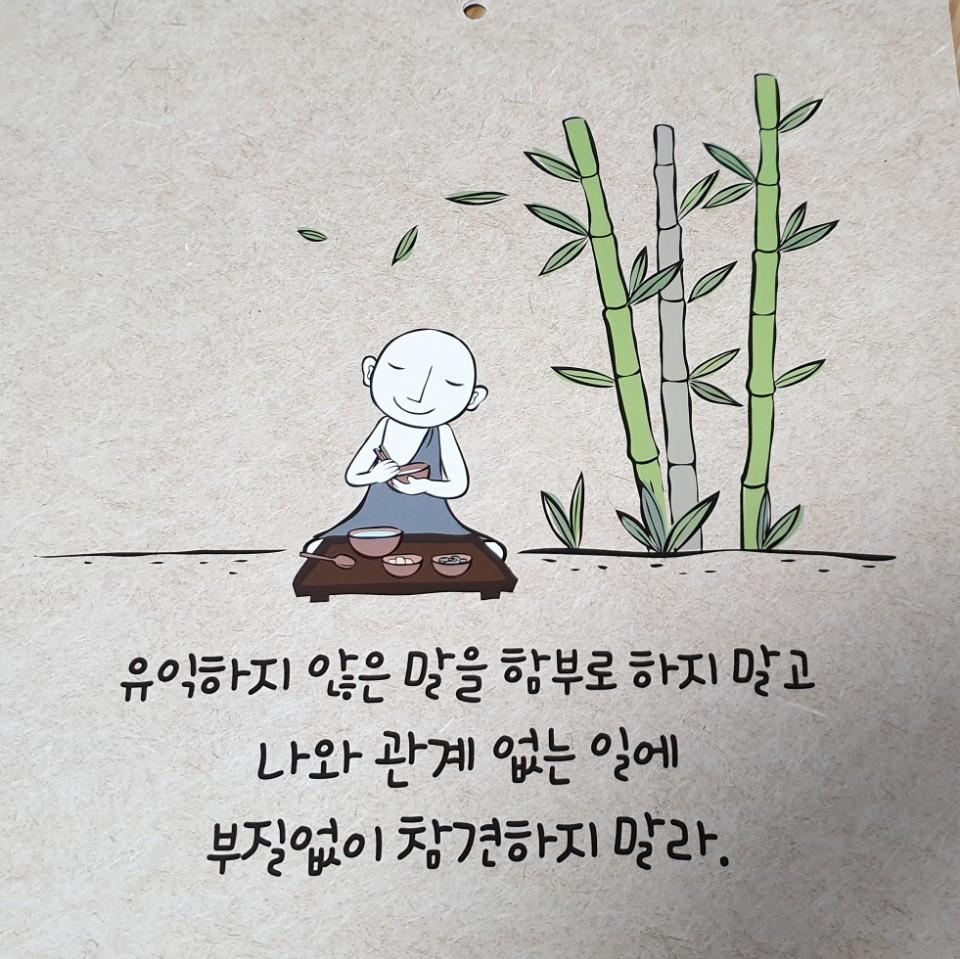 유익하지 않은 말을 함부로 하지 말고
나와 관계 없는 일에
부질없이 참견하지 말라.